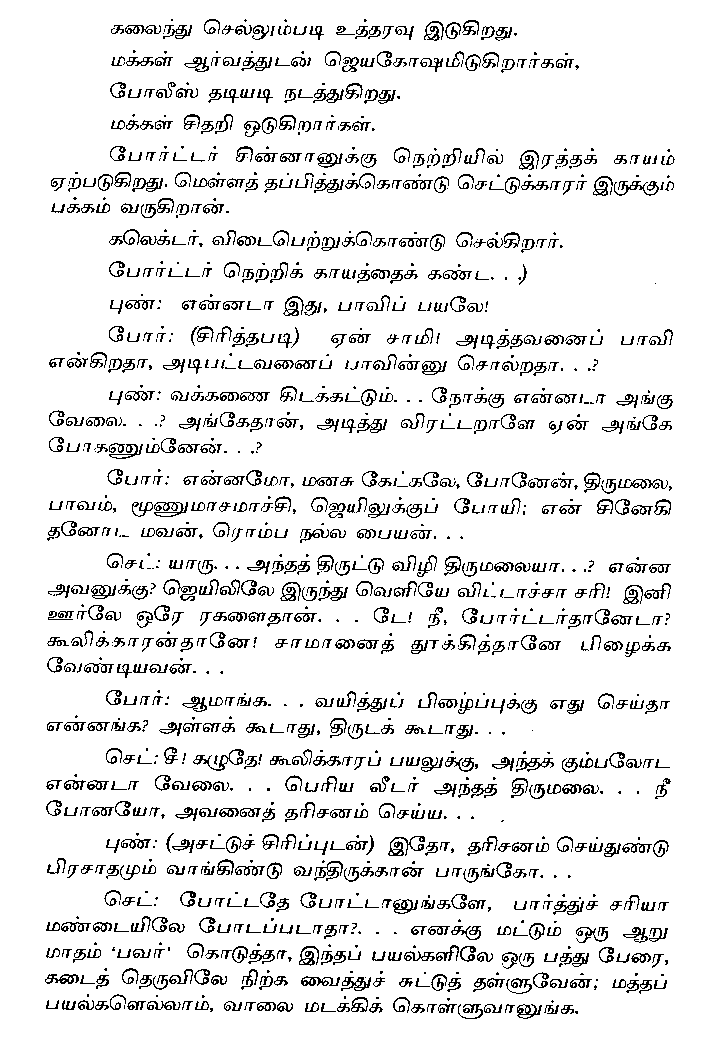 கலைந்து செல்லும்படி உத்தரவு இடுகிறது.
மக்கள் ஆர்வத்துடன் ஜெயகோஷமிடுகிறார்கள்,
போலீஸ் தடியடி நடத்துகிறது.
மக்கள் சிதறி ஒடுகிறார்கள்.
போர்ட்டர் சின்னானுக்கு நெற்றியில் இரத்தக் காயம்
ஏற்படுகிறது. மெள்ளத் தப்பித்துக்கொண்டு செட்டுக்காரர் இருக்கும்
பக்கம் வருகிறான்.
கலெக்டர், விடைபெற்றுக்கொண்டு செல்கிறார்.
போர்ட்டர் நெற்றிக் காயத்தைக் கண்ட. . .)
புண்: என்னடா இது, பாவிப் பயலே!
போர்: (சிரித்தபடி) ஏன் சாமி! அடித்தவனைப் பாவி
என்கிறதா, அடிபட்டவனைப் பாவின்னு சொல்றதா. . .?
புண்: வக்கணை கிடக்கட்டும். . . நோக்கு என்னடா அங்கு
வேலை. . .? அங்கேதான், அடித்து விரட்டறாளே ஏன் அங்கே
போகணும்னேன். . .?
போர்: என்னமோ, மனசு கேட்கலே, போனேன், திருமலை,
பாவம், மூணுமாசமாச்சி, ஜெயிலுக்குப் போயி; என் சினேகி
தனோட மவன், ரொம்ப நல்ல பையன். . .
செட்: யாரு. . . அந்தத் திருட்டு விழி திருமலையா. . .? என்ன
அவனுக்கு? ஜெயிலிலே இருந்து வெளியே விட்டாச்சா சரி! இனி
ஊர்லே ஒரே ரகளைதான். . . டே! நீ, போர்ட்டர்தானேடா?
கூலிக்காரன்தானே! சாமானைத் தூக்கித்தானே பிழைக்க
வேண்டியவன். . .
போர்: ஆமாங்க. . . வயித்துப் பிழைப்புக்கு எது செய்தா
என்னங்க? அள்ளக் கூடாது, திருடக் கூடாது. . .
செட்: சீ! கழுதே! கூலிக்காரப் பயலுக்கு, அந்தக் கும்பலோட
என்னடா வேலை. . . பெரிய லீடர் அந்தத் திருமலை. . . நீ
போனயோ, அவனைத் தரிசனம் செய்ய. . .
புண்: (அசட்டுச் சிரிப்புடன்) இதோ, தரிசனம் செய்துண்டு
பிரசாதமும் வாங்கிண்டு வந்திருக்கான் பாருங்கோ. . .
செட்: போட்டதே போட்டானுங்களே, பார்த்துச் சரியா
மண்டையிலே போடப்படாதா?. . . எனக்கு மட்டும் ஒரு ஆறு
மாதம் ‘பவர்' கொடுத்தா, இந்தப் பயல்களிலே ஒரு பத்து பேரை,
கடைத் தெருவிலே நிற்க வைத்துச் சுட்டுத் தள்ளுவேன்; மத்தப்
பயல்களெல்லாம், வாலை மடக்கிக் கொள்ளுவானுங்க.